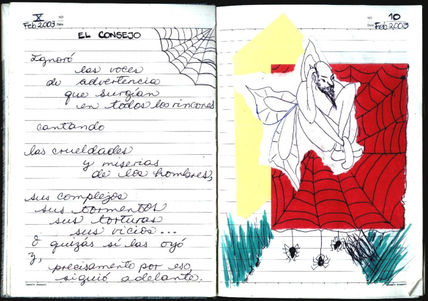 X
Feb 2003
EL CONSEJO
Ignoró
las voces
de advertencia
que surgían
en todos los rincones
cantando
las crueldades
y miserias
de los hombres,
sus complejos
sus tormentos
sus torturas
sus vicios...
O quizás sí las oyó
y,
precisamente por eso,
siguió adelante.
10
Feb 2003